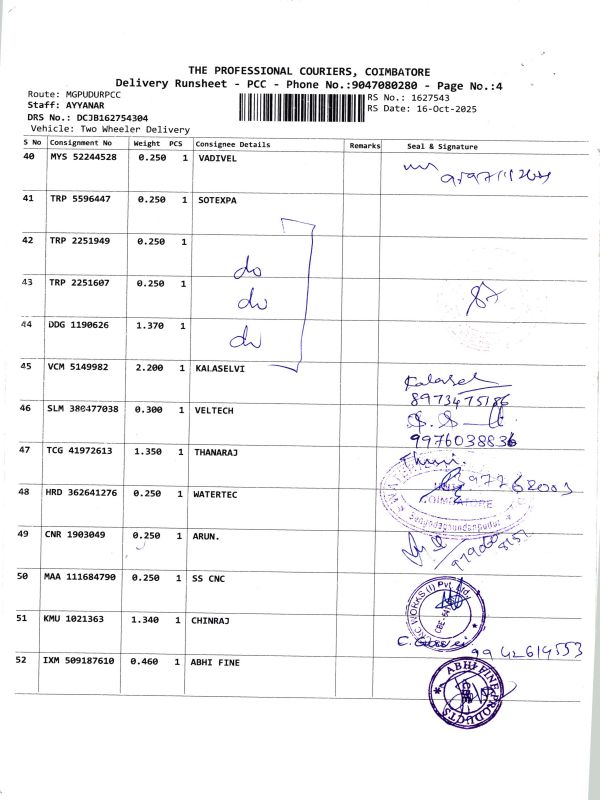 THE PROFESSIONAL COURIERS, COIMBATORE
Delivery Runsheet - PCC - Phone No.:9047080280 - Page No.:4
Route: MGPUDURPCC RS No.: 1627543
Staff: AYYANAR RS Date: 16-Oct-2025
DRS No.: DCJB162754304
Vehicle: Two Wheeler Delivery
S No Consignment No Weight PCS Consignee Details Remarks Seal & Signature
40 MYS 52244528 0.250 1 VADIVEL
41 TRP 5596447 0.250 1 SOTEXPA
42 TRP 2251949 0.250 1
do
43 TRP 2251607 0.250 1
do
44 DDG 1190626 1.370 1
do
45 VCM 5149982 2.200 1 KALASELVI
Kalasel
8973475186
46 SLM 380477038 0.300 1 VELTECH
9976038836
47 TCG 41972613 1.350 1 THANARAJ
48 HRD 362641276 0.250 1 WATERTEC
COIMBATORE
49 CNR 1903049 0.250 1 ARUN.
50 MAA 111684790 0.250 1 SS CNC
51 KMU 1021363 1.340 1 CHINRAJ
9942619553
52 IXM 509187610 0.460 1 ABHI FINE
ABHI FINE PRODUCTS